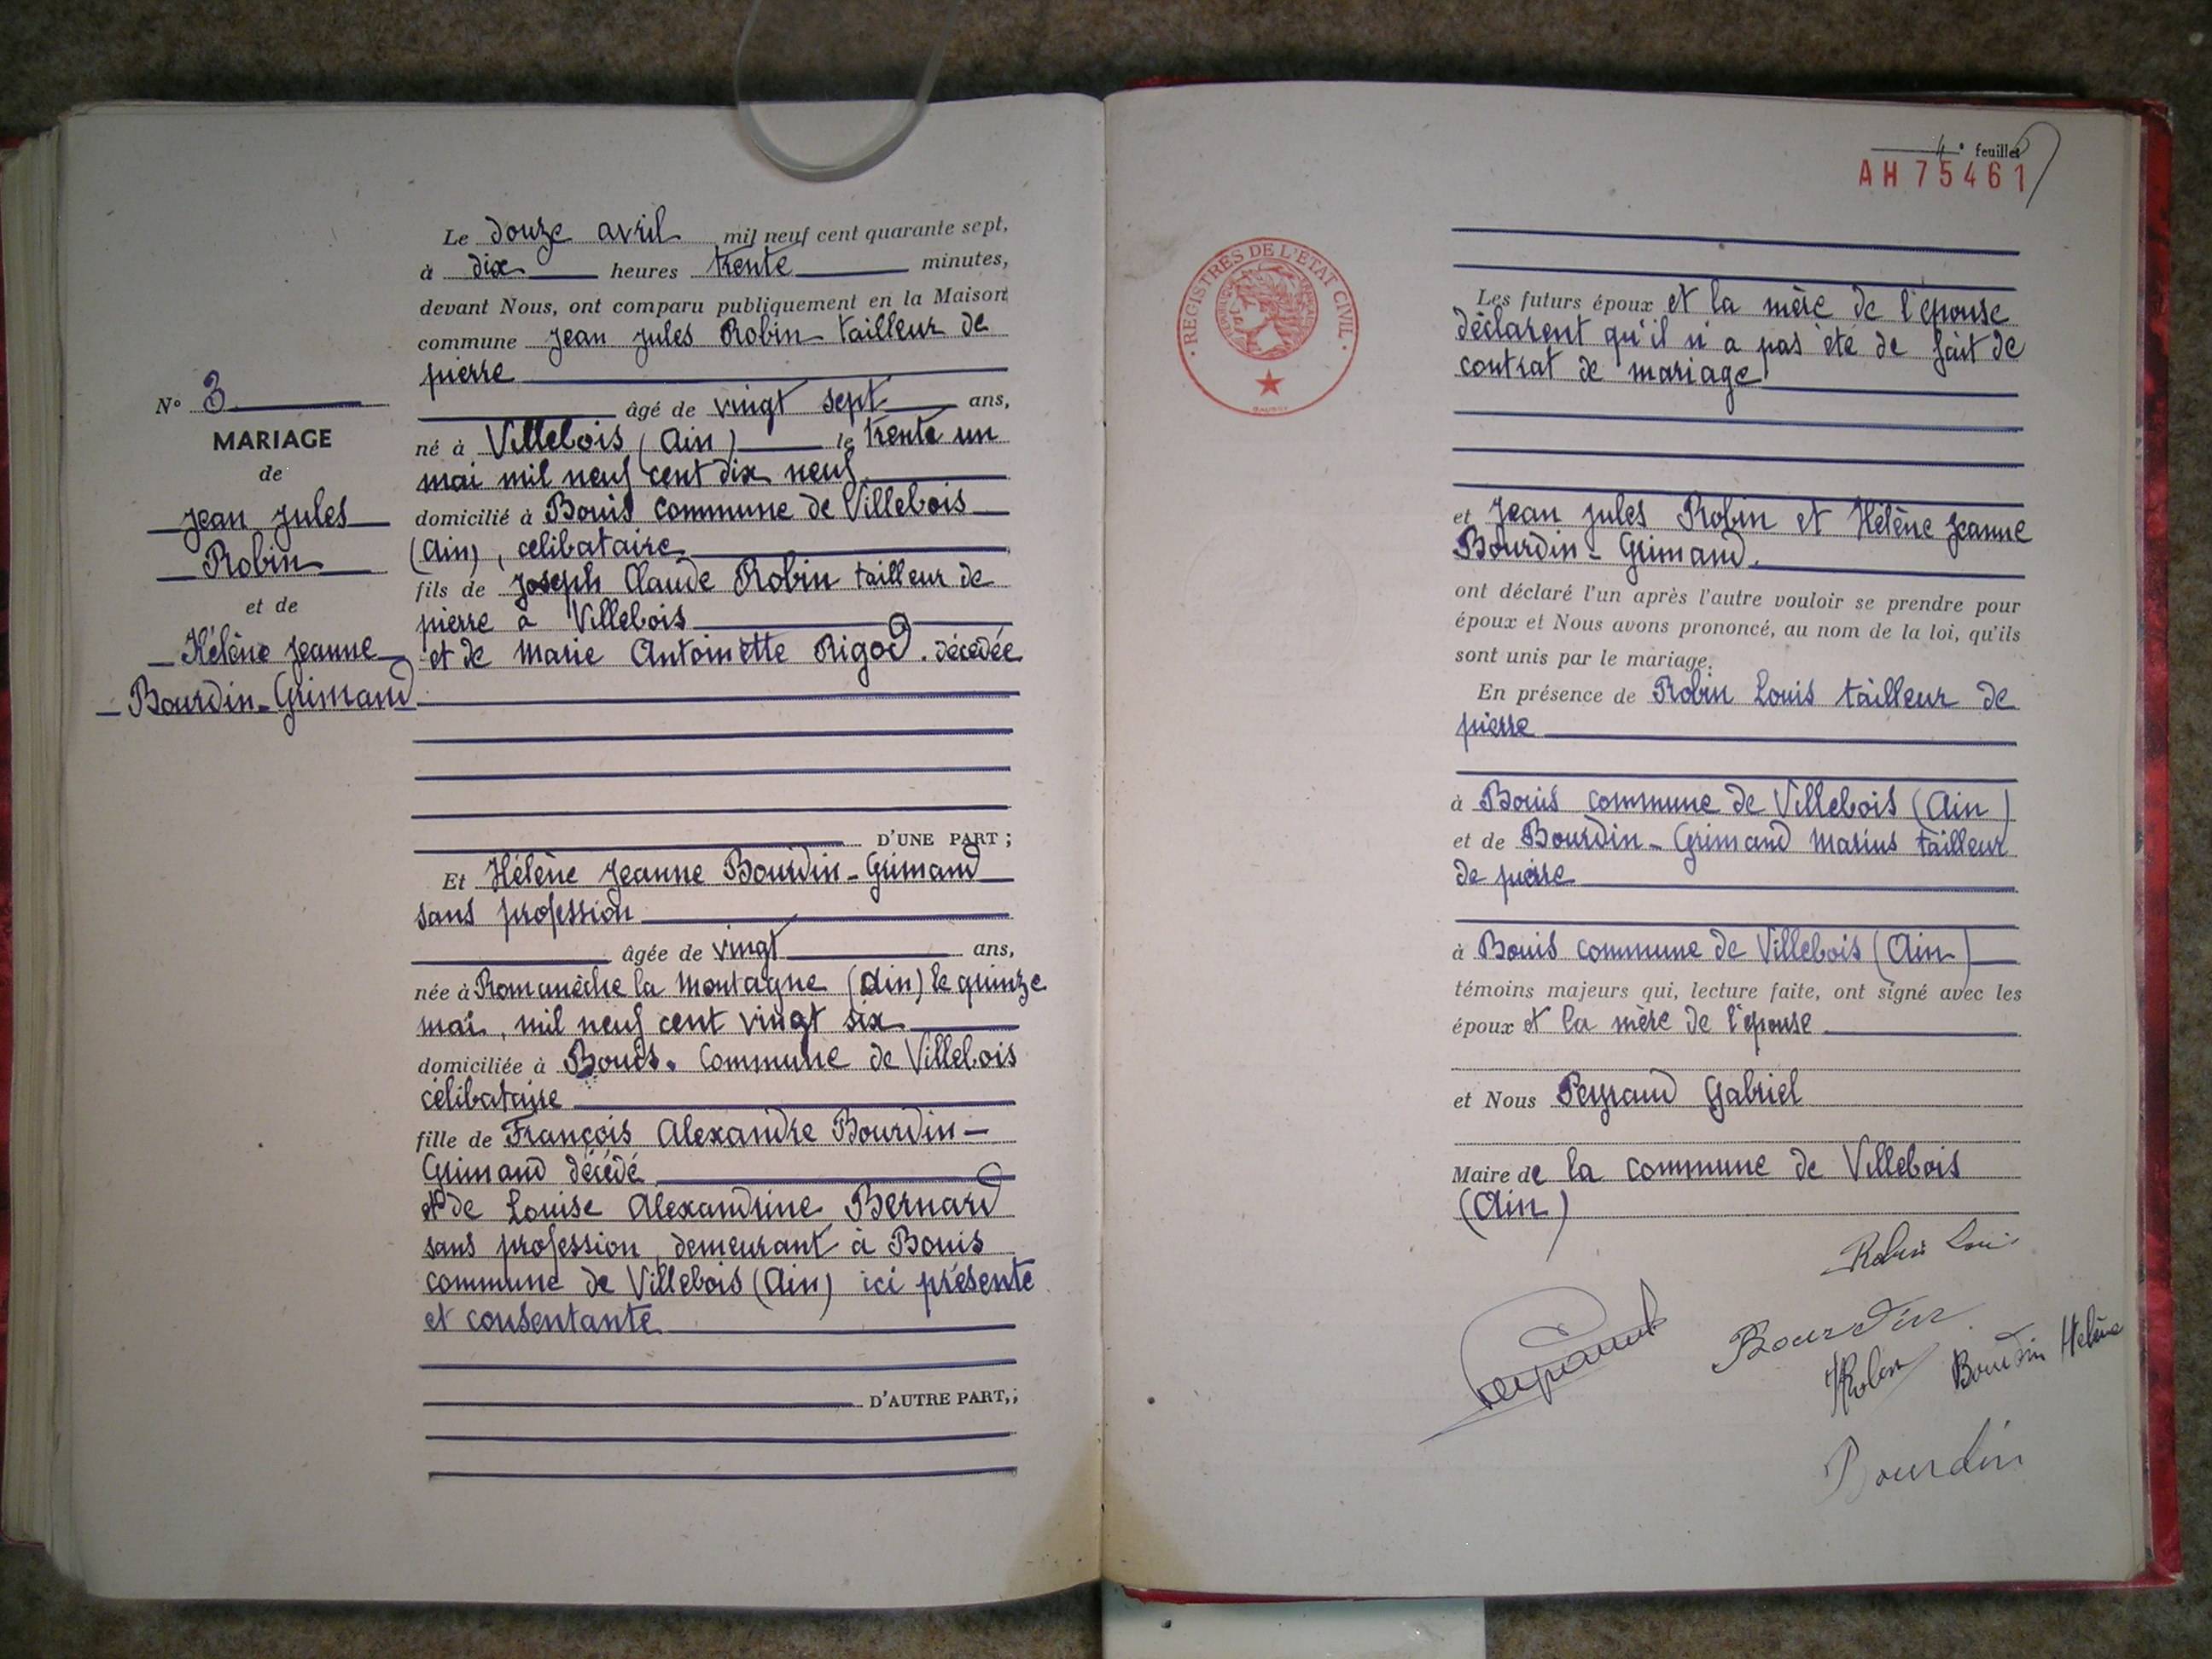 N° 3
MARIAGE
de
Jean Jules
Robin
et de
Hélène Jeanne
Bourdin-Grimand
Le douze avril mil neuf cent quarante sept,
à dix heures trente minutes,
devant Nous, ont comparu publiquement en la Maison
commune Jean Jules Robin tailleur de
pierre
âgé de vingt sept ans,
né à Villebois (Ain) le trente un
mai mil neuf cent dix neuf
domicilié à Bouis commune de Villebois
(Ain), célibataire
fils de Joseph Claude Robin tailleur de
pierre à Villebois
et de Marie Antoinette Rigod. décédée
D'UNE PART ;
Et Hélène Jeanne Bourdin-Grimand
sans profession
âgée de vingt ans,
née à Romanèche la Montagne (Ain) le quinze
mai, mil neuf cent vingt six
domiciliée à Bouis. Commune de Villebois
célibataire
fille de François Alexandre Bourdin-
Grimand décédé
et de Louise Alexandrine Bernard
sans profession, demeurant à Bouis
commune de Villebois (Ain) ici présente
et consentante
D'AUTRE PART,;
4e feuillet
AH 75461
REGISTRES DE L'ÉTAT CIVIL
Les futurs époux et la mère de l'épouse
déclarent qu'il n'a pas été de fait de
contrat de mariage
et Jean Jules Robin et Hélène Jeanne
Bourdin-Grimand.
ont déclaré l'un après l'autre vouloir se prendre pour
époux et Nous avons prononcé, au nom de la loi, qu'ils
sont unis par le mariage.
En présence de Robin Louis tailleur de
pierre
à Bouis commune de Villebois (Ain)
et de Bourdin-Grimand Marius tailleur
de pierre
à Bouis commune de Villebois (Ain)
témoins majeurs qui, lecture faite, ont signé avec les
époux et la mère de l'épouse
et Nous Peyraud Gabriel
Maire de la commune de Villebois
(Ain)
Robin Louis
Peyraud
Bourdin
Robin
Bourdin Hélène
Bourdin